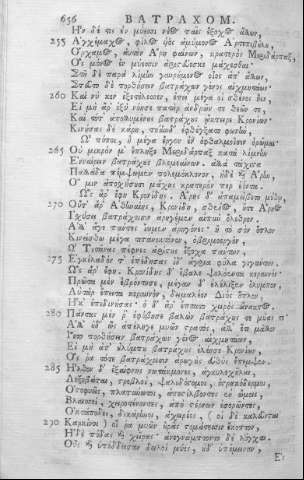 656 ΒΑΤΡΑΧΟΜ.
Ἦν δέ τις ἐν μύεσσι νέος παῖς ἔξοχος ἄλλων,
255 Ἀγχέμαχος, φίλος υἱὸς ἀμύμονος Ἀρτεπιβόλου,
Ὄρχαμος, αὐτὸν Ἄρην φαίνων, κρατερὸς Μεριδάρπαξ·
Ὃς μόνος ἐν μύεσσιν μάχεσθαι·
Στῆ δὲ παρὰ λίμνην γαυρούμενος οἶος ἀπ' ἄλλων,
Στεῦτο δὲ πορθήσειν βατράχων γένος αἰχμητάων·
260 Καὶ νύ κεν ἐξετέλεσσεν, ἐπεὶ μέγα οἱ σθένος ἦεν,
Εἰ μὴ ἄρ' ὀξὺ νόησε πατὴρ ἀνδρῶν τε θεῶν τε,
Καὶ τότ' ἀπολλυμένους βατράχους ᾤκτειρε Κρονίων·
Κινήσας δὲ κάρη, τοίην δ' ἐφθέγξατο φωνήν,
Ὢ πόποι, ἦ μέγα ἔργον ἐν ὀφθαλμοῖσιν ὁρῶμαι·
265 Οὐ μικρόν μ' ἔπληξε Μεριδάρπαξ κατὰ λίμνην
Ἐνναίρων βατράχους βλεμεαίνων· ἀλλὰ τάχιστα
Παλλάδα πέμψωμεν πολεμόκλονον, ἠδὲ καὶ Ἄρην,
Οἵ μιν ἀποσχήσουσι μάχης κρατερόν περ ἐόντα.
Ὣς ἄρ' ἔφη Κρονίδης· Ἄρης δ' ἀπαμείβετο μύθῳ,
270 Οὔτ' ἄρ' Ἀθηναίης, Κρονίδη, σθένος, οὔτ' Ἄρηος
Ἰσχύσει βατράχοισιν ἀρηγέμεν αἰπὺν ὄλεθρον·
Ἀλλ' ἄγε πάντες ἴωμεν ἀρηγόνες· ἢ τὸ σὸν ὅπλον
Κινείσθω μέγα τιτανοκτόνον, ὀβριμοεργόν,
ᾯ Τιτᾶνας πέφνες ἀρίστους ἔξοχα πάντων,
275 Ἐγκέλαδόν τ' ἐπέδησας ἰδ' ἄγρια φῦλα γιγάντων.
Ὣς ἄρ' ἔφη. Κρονίδης δ' ἔβαλε ψολόεντα κεραυνόν·
Πρῶτα μὲν ἐβρόντησε, μέγαν δ' ἐλέλιξεν ὄλυμπον.
Αὐτὰρ ἔπειτα κεραυνὸν, δειμαλέον Διὸς ὅπλον,
Ἧκ' ἐπιδινήσας· ὁ δ' ἄρ' ἔπτατο χειρὸς ἄνακτος.
280 Πάντας μέν ῥ' ἐφόβησε βαλὼν βατράχους τε μύας τ'·
Ἀλλ' οὐδ' ὣς ἀπέληγε μυῶν στρατὸς, ἀλλ' ἔτι μᾶλλον
πορθήσειν βατράχων γένος αἰχμητάων,
Εἰ μὴ ἀπ' ὀλύμπου βατράχους ἐλέησε Κρονίων·
Ὅς ῥα τότε βατράχοισιν ἀρωγοὺς εὐθὺς ἔπεμψεν.
285 Ἦλθον δ' ἐξαίφνης νωτάκμονες, ἀγκυλοχῆλαι,
Λοξοβάται, στρεβλοὶ, ψαλιδόστομοι, ὀστρακόδερμοι,
Ὀστοφυεῖς, πλατύνωτοι, ἀποστίλβοντες ἐν ὤμοις,
Βλαισοὶ, χειροτένοντες, ἀπὸ στέρνων ἐσορῶντες,
Ὀκτάποδες, δικάρηνοι, ἀχειρέες, ( οἱ δὲ καλεῦνται
290 Καρκίνοι ) οἵ ῥα μυῶν οὐρὰς στομάτεσσιν ἔκοπτον,
Ἠδὲ πόδας καὶ χεῖρας· ἀνεγνάμπτοντο δὲ λόγχαι.
Οὓς καὶ ὑπέδδεισαν δειλοὶ μύες, οὐδ' ὑπέμειναν,
Ἐς